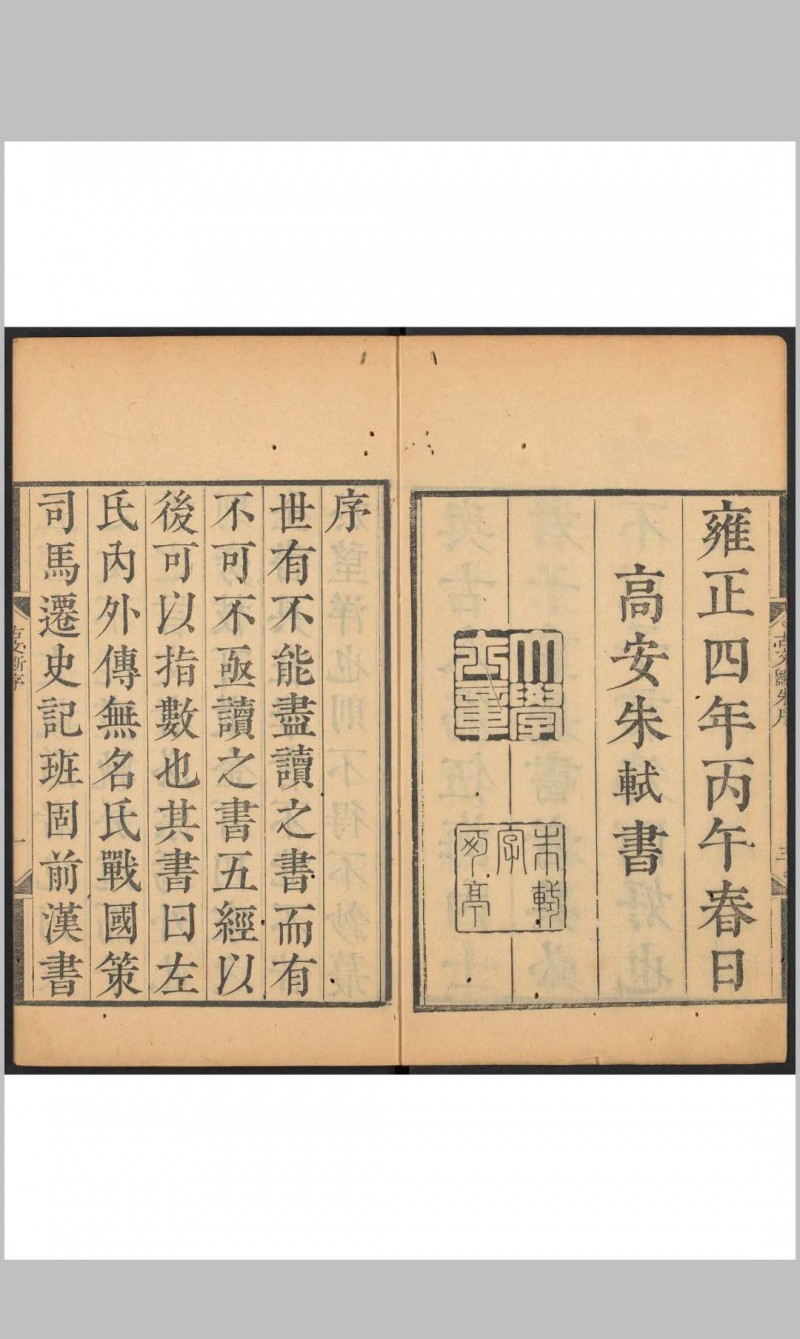 雍正四年丙午春日
高安朱軾書
大學士章
朱軾字可亭
序
世有不能盡讀之書而有
不可不亟讀之書五經以
後可以指數也其書曰左
氏內外傳無名氏戰國策
司馬遷史記班固前漢書
一